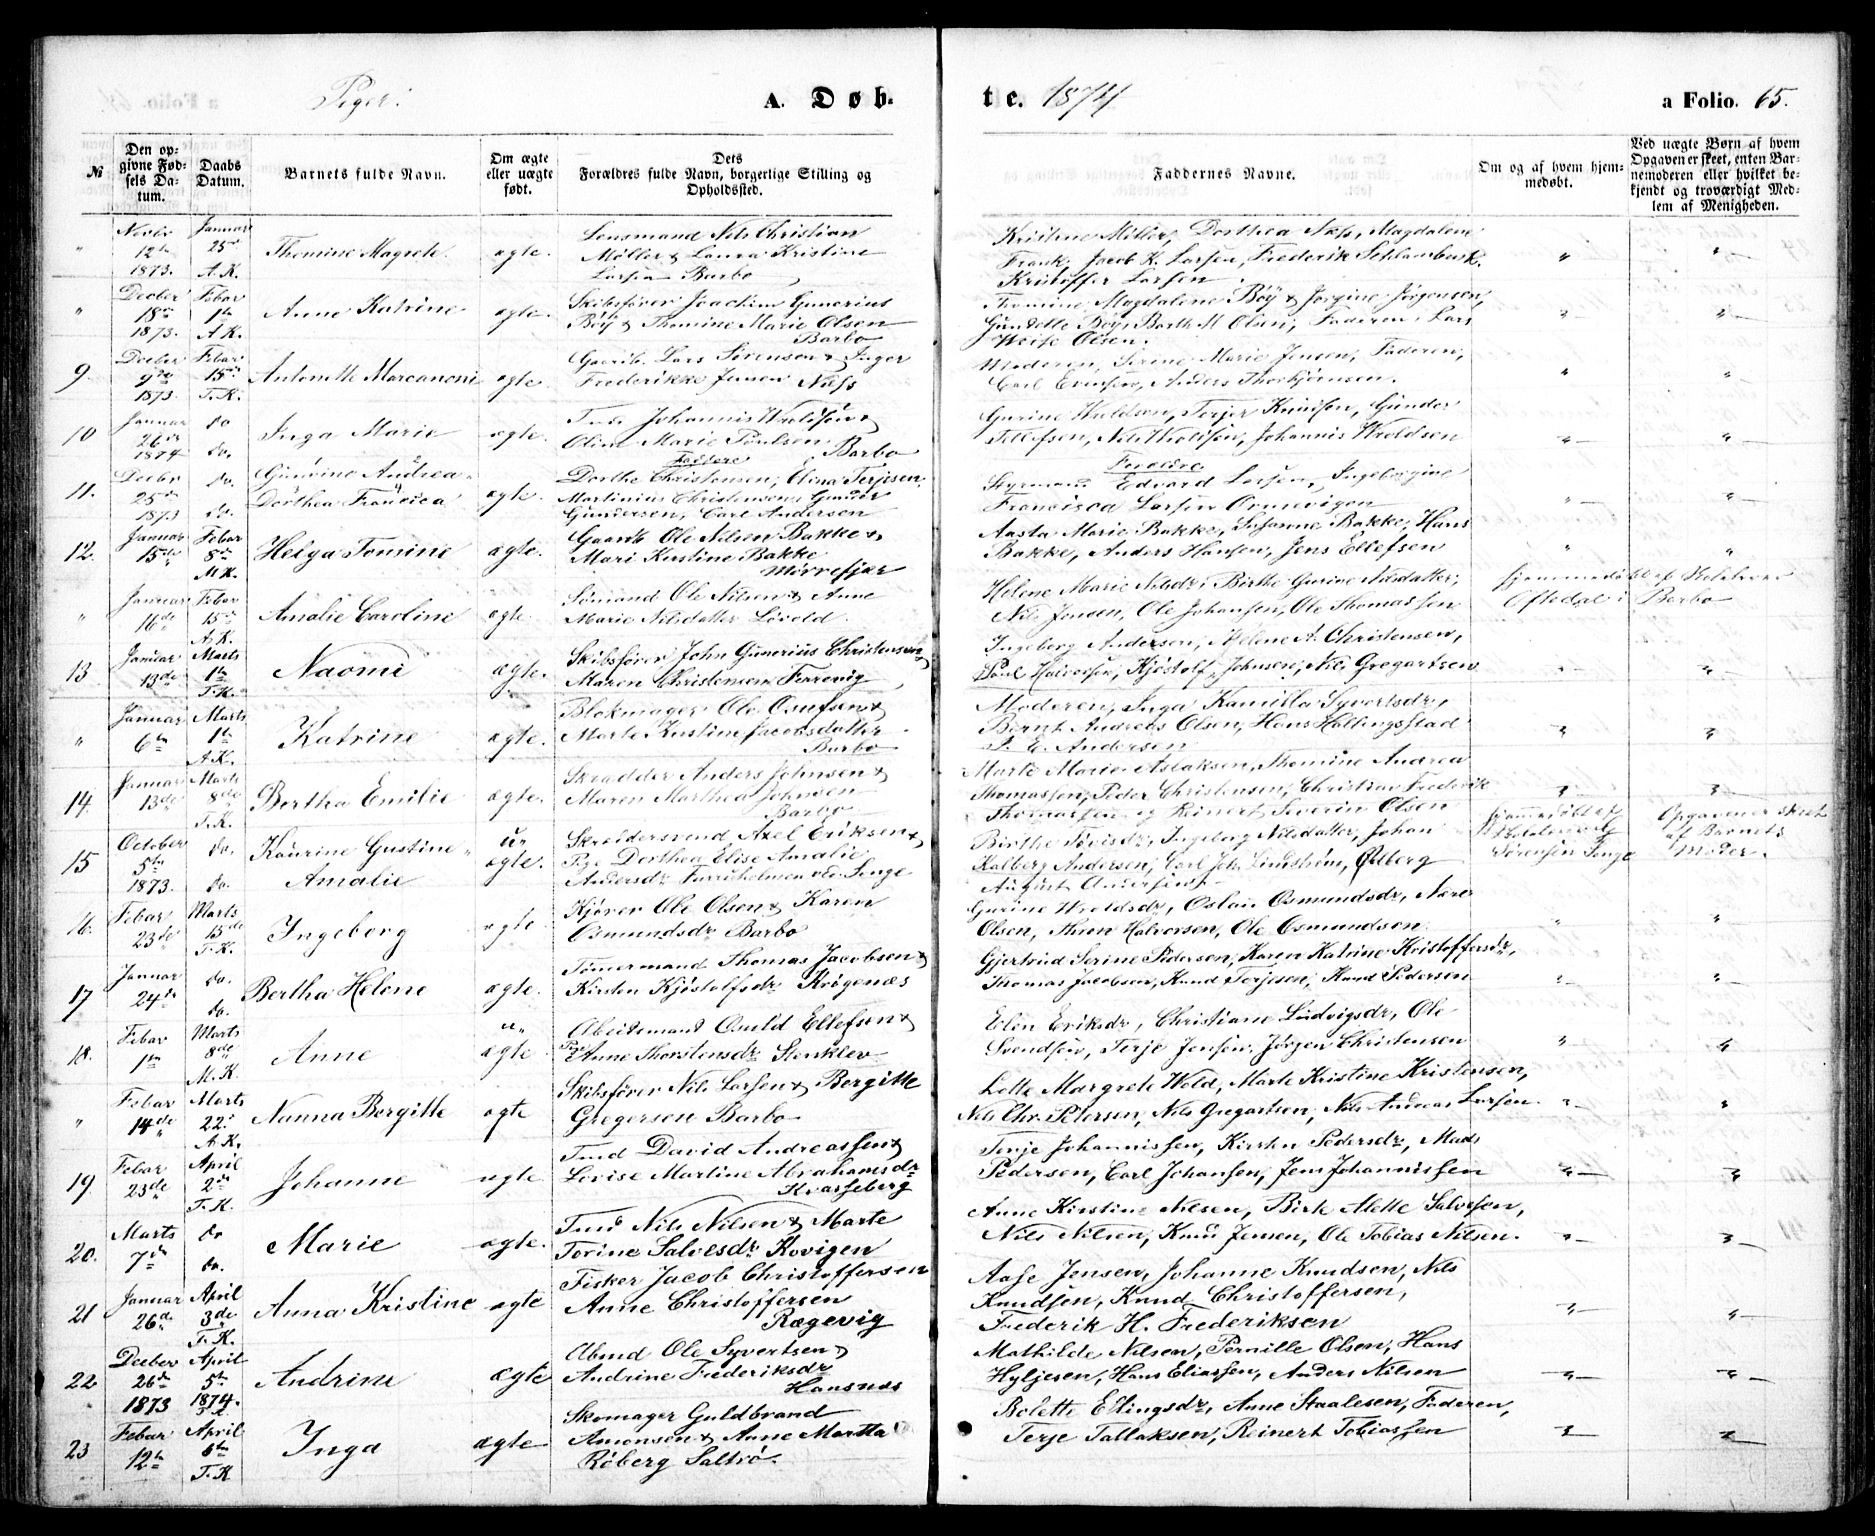 Piger.
A. Døb-
te. 1874
a Folio. 65.
№
Den op-
givne Fød-
sels Da-
tum.
Daabs
Datum.
Barnets fulde Navn.
Om ægte
eller uægte
født.
Dets
Forældres fulde Navn, borgerlige Stilling og
Opholdssted.
Faddernes Navne.
Om og af hvem hjem-
medøbt.
Ved uægte Børn af hvem
Opgaven er skeet, enten Bar-
nemoderen eller hvilket be-
kjendt og troværdigt Med-
lem af Menigheden.
" Novbr 12te 1873. Januar 25de A.K. Thomine Magrete ægte.
Lensmand Nils Christian
Møller & Laura Kristine
Larsen Barbo
Kristine Møller, Dorthea Næs, Magdalene
Frank, Jacob K. Larsen, Frederik Schlambusk.
Kristoffer Larsen
" Decber 18de 1873. Febar 1te A.K. Anne Katrine ægte.
Skibsfører Joachim Gunerius
Böy & Thomine Marie Olsen
Barbo
Tomine Magdalene Böy & Jørgine Jørgensen,
Gundelle Böy, Barth M Olsen, Faderen, Lars
Olsen.
9. Decber 9de 1873. Febar 15de T.K. Antonette Marcanoni ægte.
Lars Sørensen & Inger
Frederikke Jensen Næss
Moderen, Serine Marie Jensen, Faderen,
Carl Evensen, Anders Thorbjørnsen.
10 Januar 26de 1874 do do. Inga Marie ægte.
Johannis Wroldsen &
Oline Marie Poulsen Barbo
Gurine Wroldsen, Terjer Knudsen, Gunder
Tellefsen, Nils Wroldsen, Johannis Wroldsen
11. Decbr 25de 1873 do. do. Gunvine Andrea
Dorthea Francica ægte.
Faddere
Dorthe Christensen, Elena Terjesen,
Martinius Christensen, Gunder
Gundersen, Carl Andersen
Forældre
Styrmand Edvard Larsen, Ingeborgine
Francisca Larsen
12. Januar 15de Febar 8de M.K. Helga Tomine ægte.
Ole Nilsen Bakke &
Mari Kristine Bakke
Mørrefjær
Aasta Marie Bakke, Susanne Bakke, Hans
Bakke, Anders Hansen, Jens Ellefsen
" Januar 16de Febar 15de A.K. Amalie Caroline ægte.
Sømand Ole Nilsen & Anne
Marie Nilsdatter Løvold
Helene Marie Nilsdr, Birthe Gurine Nilsdatter,
Nils Jensen, Ole Johansen, Ole Thomassen
hjemmedøbt af
Oftedal i Barbo
13 Januar 13de Marts 1te T.K. Naomi ægte.
Skibsfører John Gunerius Christensen
Maren Christensen Terrevig
Ingeborg Andersen, Helene A. Christensen,
Poul Halvorsen, Kjøstolf Johnsen, Nils Gregartsen
" Januar 6te Marts 1te A.K. Katrine ægte.
Blokmager Ole Osufsen &
Marte Kristine Jacobsdatter
Barbo
Moderen, Inga Kamilla Syvertsdr,
Bernt Andreas Olsen, Hans Hallingsstad
P. E. Andersen
14. Januar 13de Marts 8de T.K. Bertha Emilie ægte.
Skrædder Anders Johnsen &
Maren Marthea Johnsen
Barbo
Marte Marie Aslaksen, Thomine Andrea
Thomassen, Peder Christensen, Christian Frederik
Thomassen og Reinert Severin Olsen
15 October 5te 1873. do. do. Kaurine Gustine
Amalie u-ægte.
Skræddersvend Axel Eriksen &
Pige Dorthea Elise Amalie
Andersdr
Birthe Tovisdr, Ingeborg Nilsdatter, Johan
Kalberg Andersen, Carl Joh. Lindstrøm, Edberg
August Andersen
hjemmedøbt af
Sørensen Songe
Opgaven er skeet
af Barnets
Moder.
16. Febar 23de Marts 15de T.K. Ingeborg ægte
Kjører Ole Olsen & Karen
Osmundsdr Barbo
Gurine Wroldsdr, Oslai Osmundsdr, Nærer
Olsen, Halvorsen, Ole Osmundsen
17 Januar 24de do. do. Bertha Helene ægte.
Tømermand Thomas Jacobsen &
Kirsten Kjøstolfsdr Krøgenæs
Gjertrud Serine Pedersen, Karen Katrine Kristoffersdr,
Thomas Jacobsen, Knud Terjesen, Knud Pedersen
18. Febar 1te Marts 8de M.K. Anne u-ægte
Arbeidsmand Osuld Ellefsen &
Pige Anne Thorstensdr Stenklev
Elen Eriksdr, Christiane Ludvigsdr, Ole
Svendsen, Terje Jensen, Jørgen Christensen
" Febar 14de Marts 22de A.K. Nanna Bergitte ægte
Skibsfører Nils Larsen & Bergitte
Gregersen Barbo
Lette Margrete Wold, Marte Kristine Kristensen,
Nils Chr. Petersen, Nils Gregartsen, Nils Andreas Larsen.
19. Febar 23de April 2de T.K. Johanne ægte
David Andreassen &
Lovise Martine Abrahamsdr
Kvasseberg
Terje Johannissen, Kirsten Pedersdr, Mads
Pedersen, Carl Johansen, Jens Johannissen
20. Marts 7de do do. Marie ægte.
Nils Nilsen & Marte
Torine Salvesdr Kovigen
Anne Kirstine Nilsen, Birte Alette Salvesen,
Nils Nilsen, Knud Jensen, Ole Tobias Nilsen.
21 Januar 26de April 3de T.K. Anna Kristine ægte
Fisker Jacob Christoffersen
Anne Christoffersen
Rægevig
Aase Jensen, Johanne Knudsen, Nils
Knudsen, Knud Christoffersen,
Frederik H. Frederiksen
22 Decber 26de 1873 April 5te 1874. Andrine ægte
Ole Syvertsen &
Andrine Frederiksdr
Hansnæs
Mathilde Nilsen, Pernille Olsen, Hans
Hyljesen, Hans Eliassen, Anders Nilsen
23 Febar 12te April 6te T.K. Inga ægte
Skomager Guldbrand
Amonsen & Anne Martha
Røberg Saltrø.
Bolette Ellingsdr, Anne Staalesen, Faderen,
Terje Tallaksen, Reinert Tobiassen